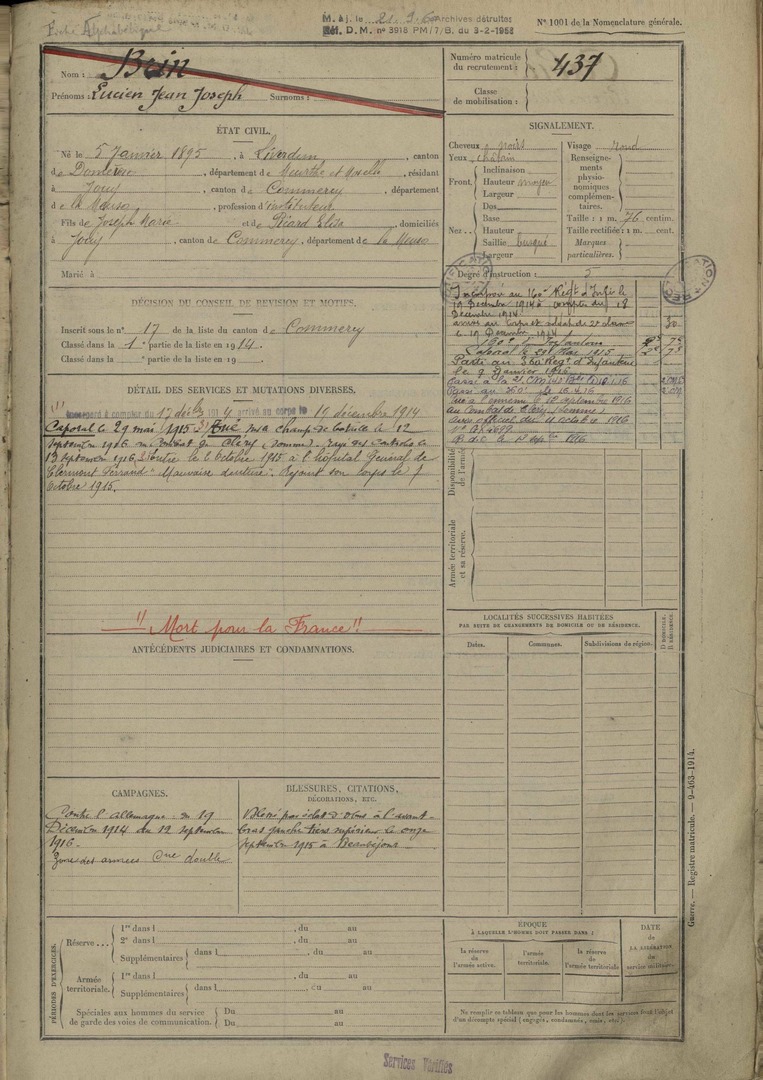 Fiche Alphabétique
M. à j. le 21.9.60 Archives détruites
Réf. D. M. n° 3918 PM/7/B. du 3-2-1958
N° 1001 de la Nomenclature générale.
Nom : Brin
Prénoms : Lucien Jean Joseph Surnoms :
Numéro matricule du recrutement : 437
Classe de mobilisation :
ÉTAT CIVIL.
Né le 5 Janvier 1895, à Liverdun, canton
de Domèvre, département de Meurthe et Moselle, résidant
à Jouy, canton de Commercy, département
de la Meuse, profession d'instituteur
Fils de Joseph Marie et de Picard Elisa, domiciliés
à Jouy, canton de Commercy, département de la Meuse
Marié à
SIGNALEMENT.
Cheveux noirs
Yeux châtain
Front. Inclinaison
Hauteur moyen
Largeur
Nez : Dos
Base
Hauteur
Saillie busqué
Largeur
Visage rond
Renseignements physionomiques complémentaires.
Taille : 1 m. 76 centim.
Taille rectifiée : 1 m. cent.
Marques particulières.
Degré d'instruction : 3
DÉCISION DU CONSEIL DE REVISION ET MOTIFS.
Inscrit sous le n° 17 de la liste du canton de Commercy
Classé dans la 1e partie de la liste en 1914.
Classé dans la e partie de la liste en 19
Incorporé au 160e Régt d'Infie le
19 Décembre 1914 à compter du 18
Décembre 1914
arrivé au Corps et soldat de 2e classe
le 19 Décembre 1914
Caporal le 29 Mai 1915
Parti au 360e Régt d'Infanterie
le 9 Janvier 1916
Tué à l'ennemi le 12 septembre 1916
au Combat de Cléry (Somme)
avis officiel du 11 octobre 1916
DÉTAIL DES SERVICES ET MUTATIONS DIVERSES.
Incorporé à compter du 17 décbre 1914 arrivé au corps le 19 décembre 1914
Caporal le 29 mai 1915. Tué sur le champ de bataille le 12
septembre 1916 au combat de Cléry (Somme). Rayé des contrôles le
13 septembre 1916. Entré le 2 Octobre 1915 à l'hôpital Général de
Clermont Ferrand "Mauvaise denture". Rejoint son corps le 7
Octobre 1915.
"Mort pour la France"
Disponibilité de l'armée
Armée territoriale et sa réserve.
LOCALITÉS SUCCESSIVES HABITÉES
PAR SUITE DE CHANGEMENTS DE DOMICILE OU DE RÉSIDENCE.
Dates. Communes. Subdivisions de région. D DOMICILE. R RÉSIDENCE
ANTÉCÉDENTS JUDICIAIRES ET CONDAMNATIONS.
CAMPAGNES.
Contre l'allemagne : du 19
Décembre 1914 au 12 septembre
1916.
Zone des armées Cne double
BLESSURES, CITATIONS,
DÉCORATIONS, ETC.
Blessé par éclat d'obus à l'avant-
bras gauche tiers supérieur le onze
septembre 1915 à Beauséjour
Guerre. — Registre matricule. — 9-463-1914.
PÉRIODES D'EXERCICES.
Réserve... 1re dans l , du au
2e dans l , du au
Supplémentaires dans l , du au
Armée territoriale. 1re dans l , du au
Supplémentaires dans l , du au
Spéciales aux hommes du service de garde des voies de communication. Du au
Du au
ÉPOQUE
À LAQUELLE L'HOMME DOIT PASSER DANS :
la réserve de l'armée active. l'armée territoriale. la réserve de l'armée territoriale.
DATE de LA LIBÉRATION du service militaire.
Ne remplir ce tableau que pour les hommes dont les services font l'objet
d'un décompte spécial (engagés, condamnés, omis, etc.)
Services Vérifiés